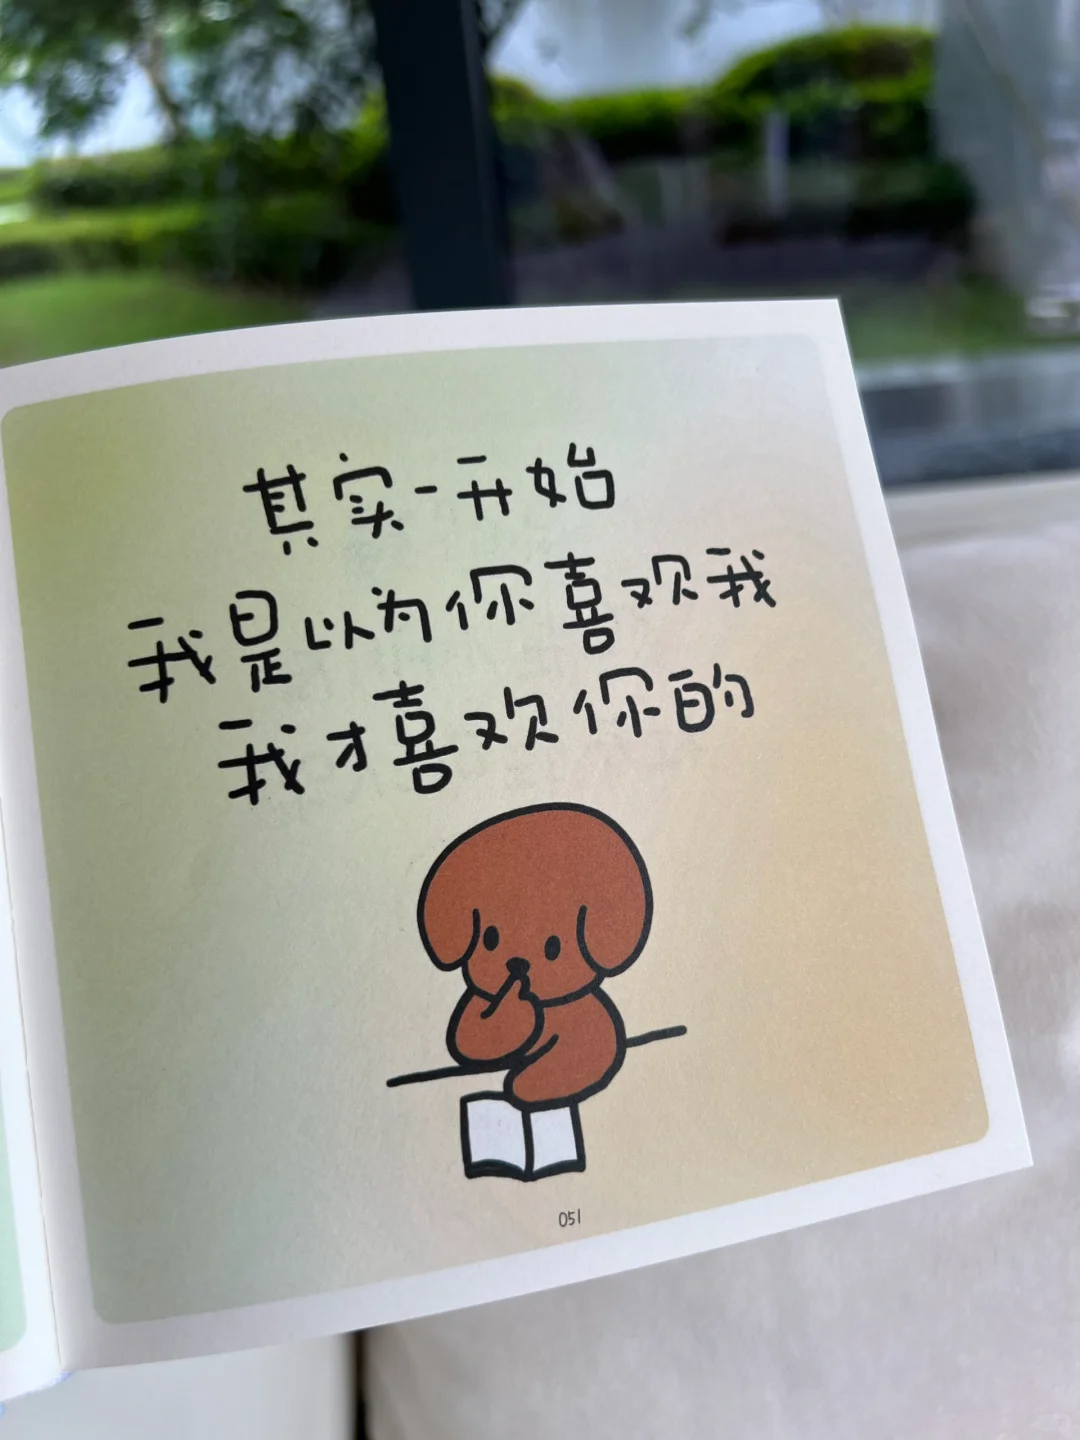 其实一开始
我是以为你喜欢我
我才喜欢你的
051